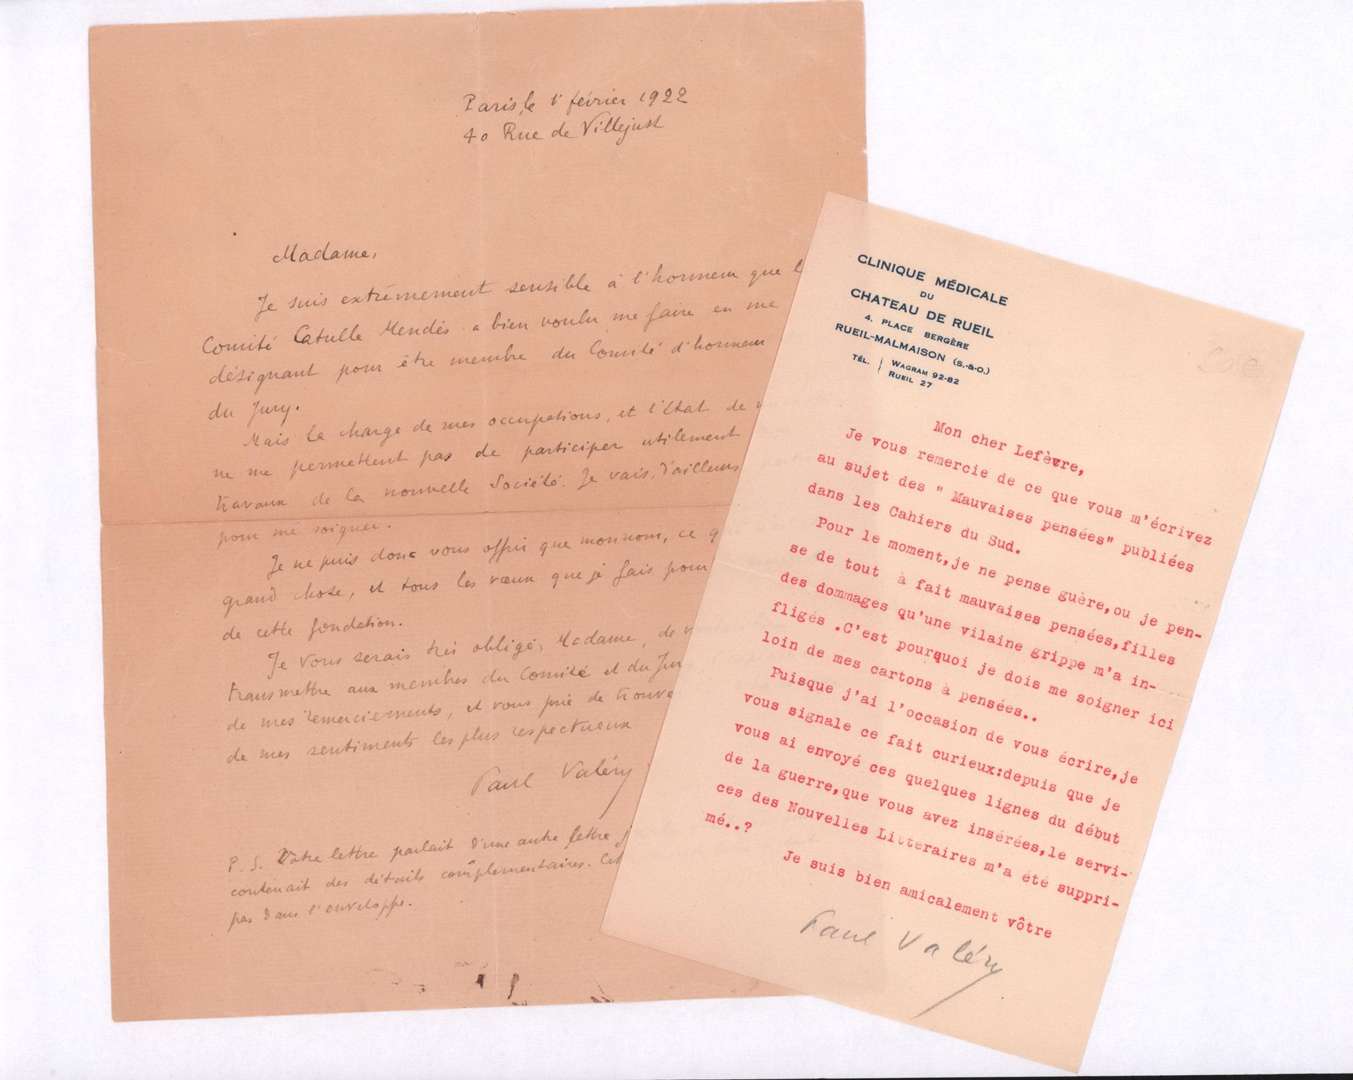 Paris, le 1r février 1922
40 Rue de Villejust
Madame,
Je suis extrêmement sensible à l'honneur que l
Comité Catulle Mendès a bien voulu me faire en me
désignant pour être membre du Comité d'honneur
du Jury.
Mais la charge de mes occupations, et l'état de
ne me permettent pas de participer utilement
travaux de la nouvelle Société. Je vais, d'ailleurs,
pour me soigner.
Je ne puis donc vous offrir que mon nom, ce q
grand chose, et tous les vœux que je fais pour
de cette fondation.
Je vous serais très obligé, Madame, de
transmettre aux membres du Comité et du Jury,
de mes remerciements, et vous prie de trouve
de mes sentiments les plus respectueux
Paul Valéry
P. S. Votre lettre parlait d'une autre lettre
contenait des détails complémentaires. Cet
pas dans l'enveloppe.
CLINIQUE MÉDICALE
DU
CHATEAU DE RUEIL
4, PLACE BERGÈRE
RUEIL-MALMAISON (S.-&-O.)
TÉL. WAGRAM 92-82
RUEIL 27
Mon cher Lefèvre,
Je vous remercie de ce que vous m'écrivez
au sujet des " Mauvaises pensées" publiées
dans les Cahiers du Sud.
Pour le moment,je ne pense guère,ou je pen-
se de tout à fait mauvaises pensées,filles
des dommages qu'une vilaine grippe m'a in-
fligés .C'est pourquoi je dois me soigner ici
loin de mes cartons à pensées..
Puisque j'ai l'occasion de vous écrire,je
vous signale ce fait curieux:depuis que je
vous ai envoyé ces quelques lignes du début
de la guerre,que vous avez insérées,le servi-
ces des Nouvelles Litteraires m'a été suppri-
mé..?
Je suis bien amicalement vôtre
Paul Valéry